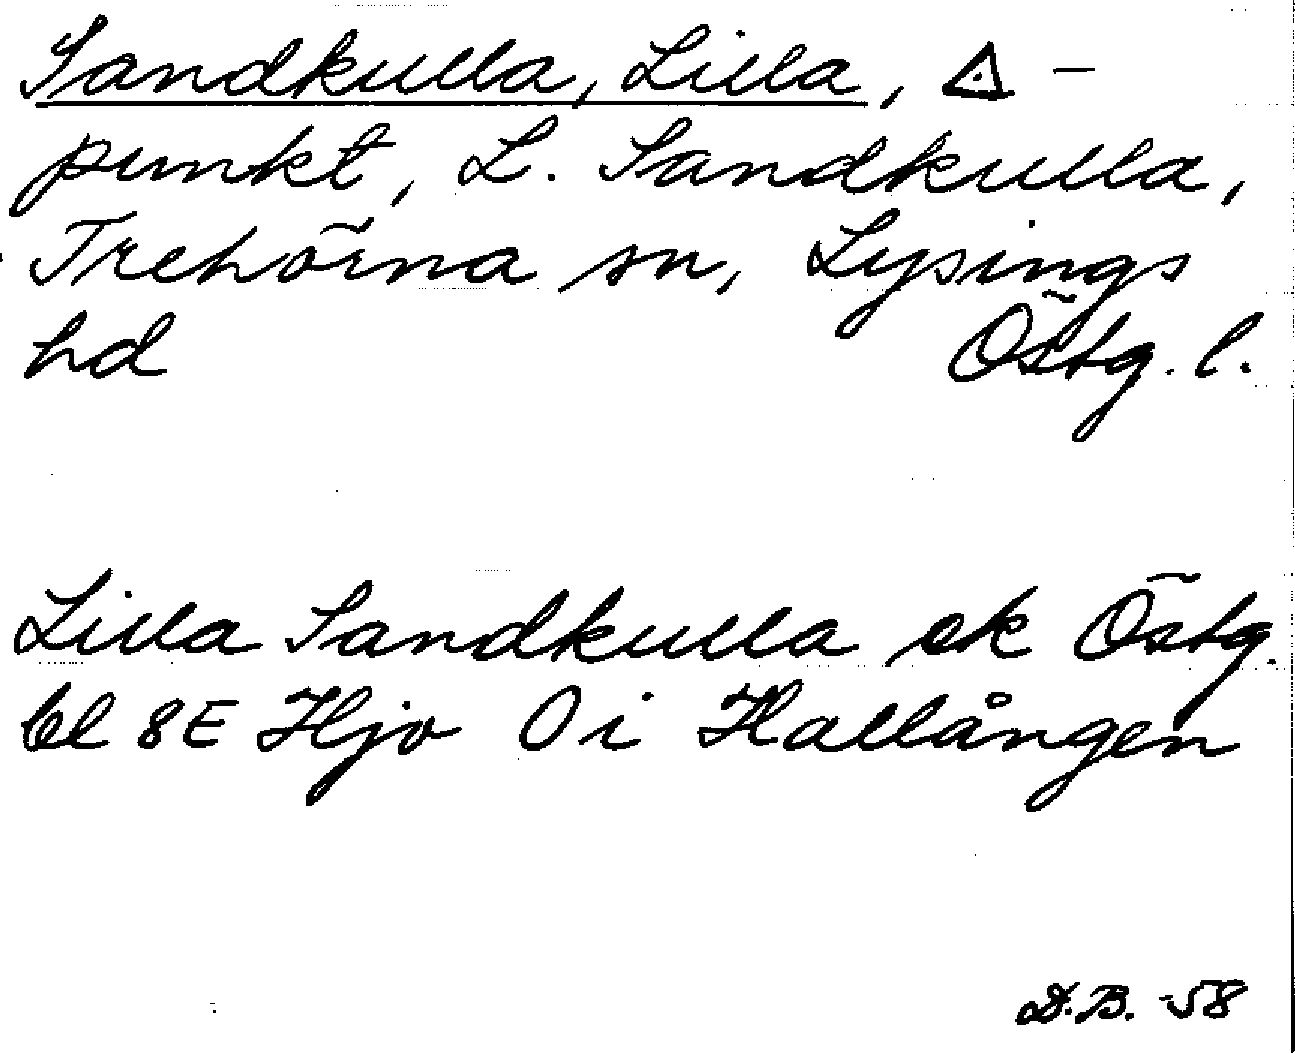 Sandkulla, Lilla, ◬ -
punkt, L. Sandkulla,
Trehörna sn, Lysings
hd Östg. l.
Lilla Sandkulla ek Östg.
bl 8E Hjo 0 i Hallången
D.B. -58